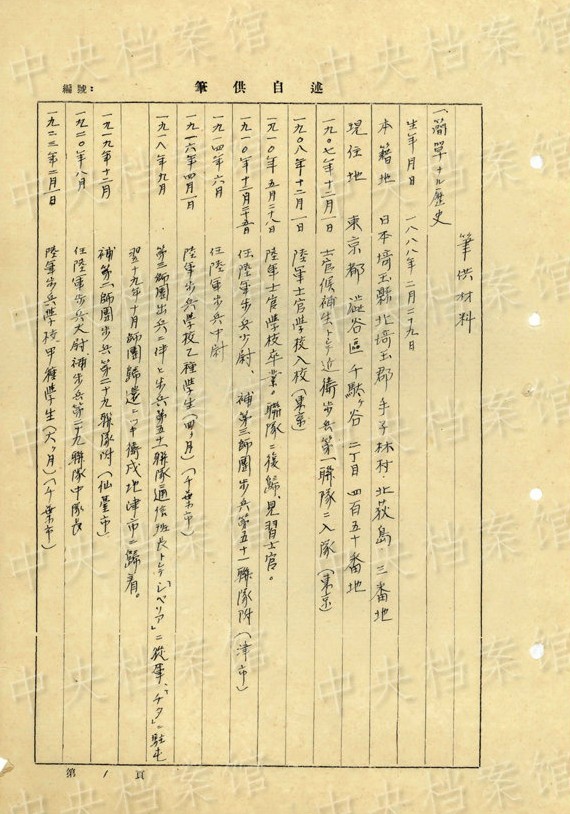 編號：
述自供筆
筆供材料
一、簡單ナル歷史
生年月日 一八八八年二月二十九日
本籍地 日本埼玉縣北埼玉郡手子林村北荻島三番地
現住地 東京都澁谷區千駄ヶ谷二丁目四百五十番地
一九〇七年十二月一日 士官候補生トシテ近衛步兵第一聯隊ニ入隊（東京）
一九〇八年十二月一日 陸軍士官學校入校（東京）
一九一〇年五月二十八日 陸軍士官學校卒業。聯隊ニ復歸、見習士官。
一九一〇年十二月二十五日 任陸軍步兵少尉、補第三師團步兵第五十一聯隊附（津市）
一九一四年六月 任陸軍步兵中尉
一九一六年四月一日 陸軍步兵學校乙種學生（四ヶ月）（千葉市）
一九一八年九月 第三師團出兵ニ伴ヒ步兵第五十一聯隊通信班長トシテ「シベリア」ニ從軍、「チタ」ニ駐屯
翌十九年十月師團歸還ニヨリ衛戍地津市ニ歸着。
一九一九年十二月 補第二師團步兵第二十九聯隊附（仙臺市）
一九二〇年八月 任陸軍步兵大尉、補步兵第二十九聯隊中隊長
一九二三年二月一日 陸軍步兵學校甲種學生（六ヶ月）（千葉市）
第 1 頁
中央档案馆